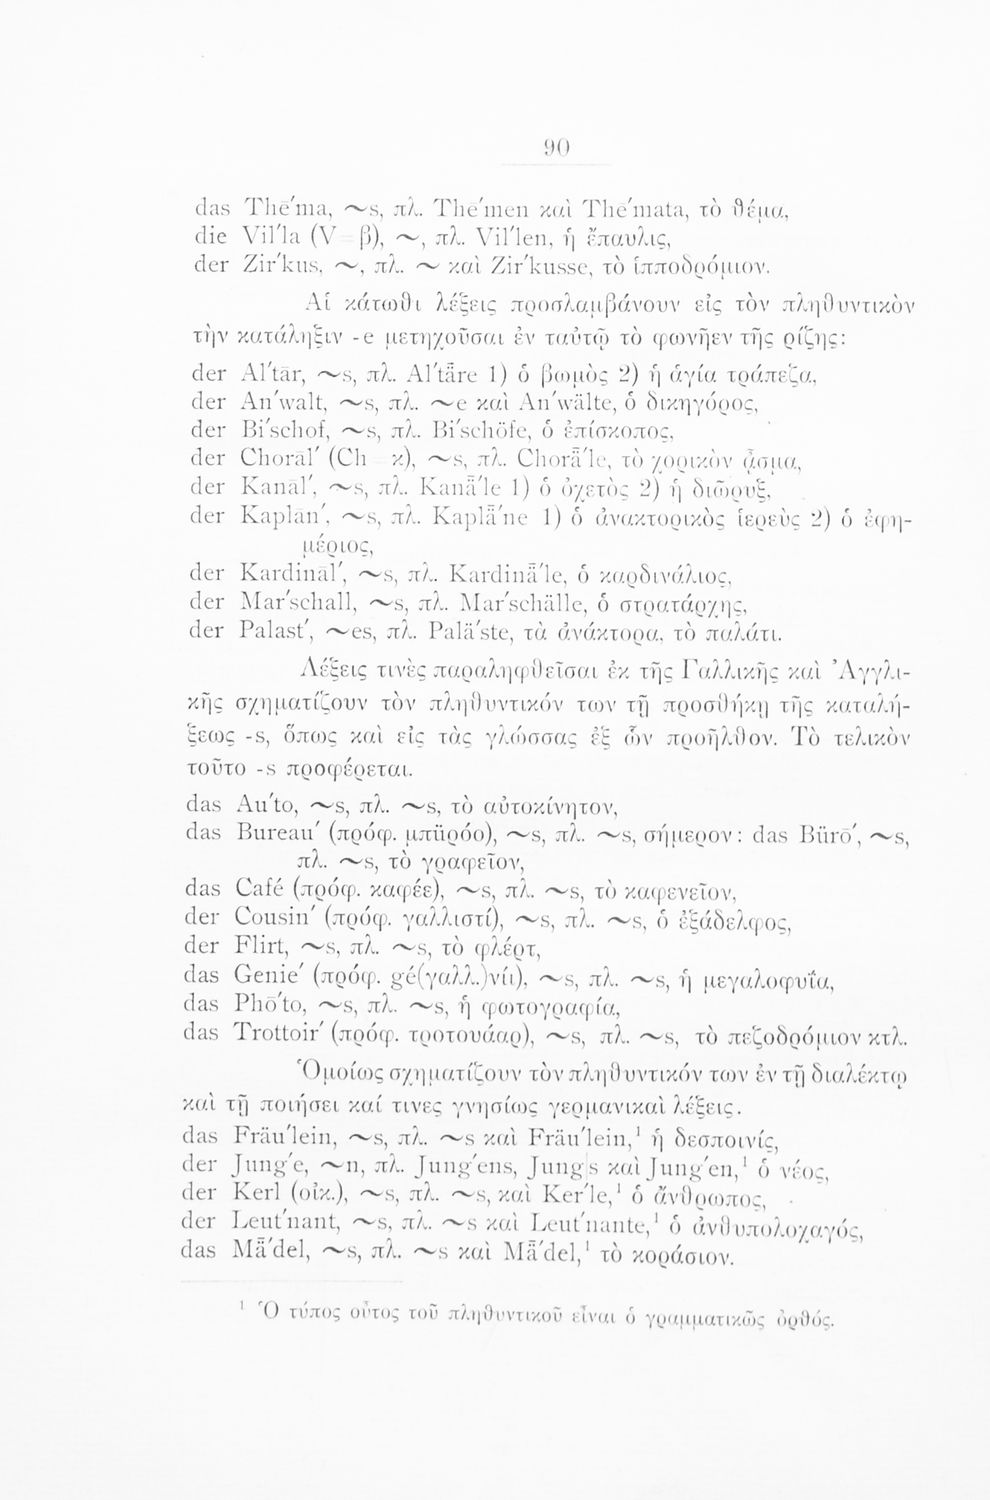 90
das Thē′ma, ~s, πλ. Thē′men καὶ Thē′mata, τὸ θέμα,
die Vil′la (V β), ~, πλ. Vil′len, ἡ ἔπαυλις,
der Zir′kus, ~, πλ. ~ καὶ Zir′kusse, τὸ ἱπποδρόμιον.
Αἱ κάτωθι λέξεις προσλαμβάνουν εἰς τὸν πληθυντικὸν
τὴν κατάληξιν -e μετηχοῦσαι ἐν ταὐτῷ τὸ φωνῆεν τῆς ρίζης:
der Al′tār, ~s, πλ. Al′tǟre 1) ὁ βωμὸς 2) ἡ ἁγία τράπεζα,
der An′walt, ~s, πλ. ~e καὶ An′wälte, ὁ δικηγόρος,
der Bi′schof, ~s, πλ. Bi′schöfe, ὁ ἐπίσκοπος,
der Chorāl′ (Ch κ), ~s, πλ. Chorǟ′le, τὸ χορικὸν ᾆσμα,
der Kanāl′, ~s, πλ. Kanǟ′le 1) ὁ ὀχετὸς 2) ἡ διῶρυξ,
der Kaplān′, ~s, πλ. Kaplǟ′ne 1) ὁ ἀνακτορικὸς ἱερεὺς 2) ὁ ἐφη-
μέριος,
der Kardināl′, ~s, πλ. Kardinǟ′le, ὁ καρδινάλιος,
der Mar′schall, ~s, πλ. Mar′schälle, ὁ στρατάρχης,
der Palast′, ~es, πλ. Palä′ste, τὰ ἀνάκτορα, τὸ παλάτι.
Λέξεις τινὲς παραληφθεῖσαι ἐκ τῆς Γαλλικῆς καὶ Ἀγγλι-
κῆς σχηματίζουν τὸν πληθυντικόν των τῇ προσθήκῃ τῆς καταλή-
ξεως -s, ὅπως καὶ εἰς τὰς γλώσσας ἐξ ὧν προῆλθον. Τὸ τελικὸν
τοῦτο -s προφέρεται.
das Au′to, ~s, πλ. ~s, τὸ αὐτοκίνητον,
das Bureau′ (πρόφ. μπüρόο), ~s, πλ. ~s, σήμερον: das Bürō′, ~s,
πλ. ~s, τὸ γραφεῖον,
das Café (πρόφ. καφέε), ~s, πλ. ~s, τὸ καφενεῖον,
der Cousin′ (πρόφ. γαλλιστί), ~s, πλ. ~s, ὁ ἐξάδελφος,
der Flirt, ~s, πλ. ~s, τὸ φλέρτ,
das Genie′ (πρόφ. gé(γαλλ.)νίι), ~s, πλ. ~s, ἡ μεγαλοφυΐα,
das Phō′to, ~s, πλ. ~s, ἡ φωτογραφία,
das Trottoir′ (πρόφ. τροτουάαρ), ~s, πλ. ~s, τὸ πεζοδρόμιον κτλ.
Ὁμοίως σχηματίζουν τὸν πληθυντικόν των ἐν τῇ διαλέκτῳ
καὶ τῇ ποιήσει καί τινες γνησίως γερμανικαὶ λέξεις.
das Fräu′lein, ~s, πλ. ~s καὶ Fräu′lein,¹ ἡ δεσποινίς,
der Jung′e, ~n, πλ. Jung′ens, Jungs καὶ Jung′en,¹ ὁ νέος,
der Kerl (οἰκ.), ~s, πλ. ~s, καὶ Ker′le,¹ ὁ ἄνθρωπος,
der Leut′nant, ~s, πλ. ~s καὶ Leut′nante,¹ ὁ ἀνθυπολοχαγός,
das Mǟ′del, ~s, πλ. ~s καὶ Mǟ′del,¹ τὸ κοράσιον.
¹ Ὁ τύπος οὗτος τοῦ πληθυντικοῦ εἶναι ὁ γραμματικῶς ὀρθός.